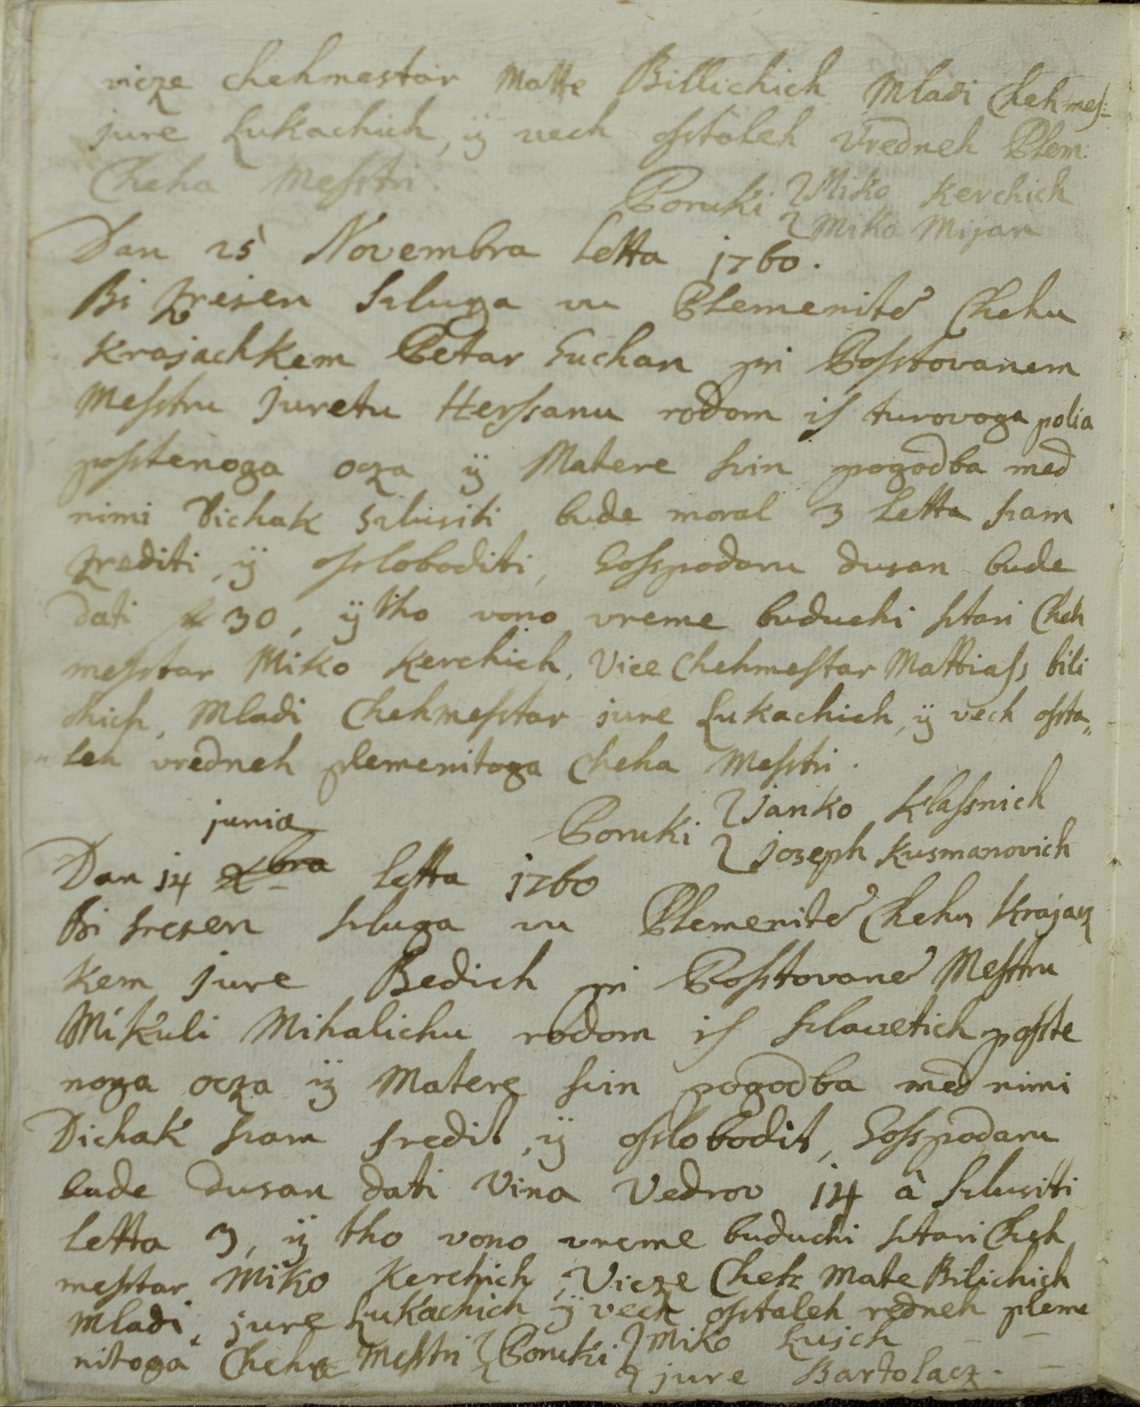 vicze chehmestar Matte Billichich Mladi Chehmes:
jure Lukachich, ÿ vech osstaleh Vredneh Plem:
Cheha Messtri.
Poruki Miko Kerchich
Miko Mijan
Dan 25 Novembra Letta 1760.
Bi zresen szluga vu Plemenitē Chehu
Krajachkem Petar Suchan pri Posstovanem
Messtru Juretu Herssanu rodom is turovoga polia
posstenoga ocza ÿ Matere szin pogodba med
nimi Dichak szlusiti bude moral 3 Letta szam
zrediti, ÿ osloboditi, Gosspodaru dusan bude
dati 30, ÿ tho vono vreme buduchi sztari Cheh
messtar Miko Kerchich, Vice Chehmestar Mattiass bili
chich, Mladi Chehmesstar jure Lukachich, ÿ vech ossta„
„leh vredneh plemenitoga Cheha Messtri.
Poruki Janko Klassnich
Jozeph Kusmanovich
junia
Dan 14 xbra Letta 1760
Bi sresen szluga vu Plemenitē Chehu Krajacz
kem Jure Bedich pri Posstovanē Messtru
Mikuli Mihalichu rodom is szlavetich posste
noga ocza ÿ Matere szin pogodba med nimi
Dichak szam sredit, ÿ oslobodit, Gosspodaru
bude dusan dati Vina Vedrov 14 â szlusitti
Letta 3, ÿ tho vono vreme buduchi sztari Cheh
messtar Miko Kerchich, Vicze Cheh: Mate Bilichich
Mladi, jure Lukachich ÿ vech osstaleh redneh pleme
nitoga Cheha Messtri Poruki Miko Lusich
jure Bartolacz.